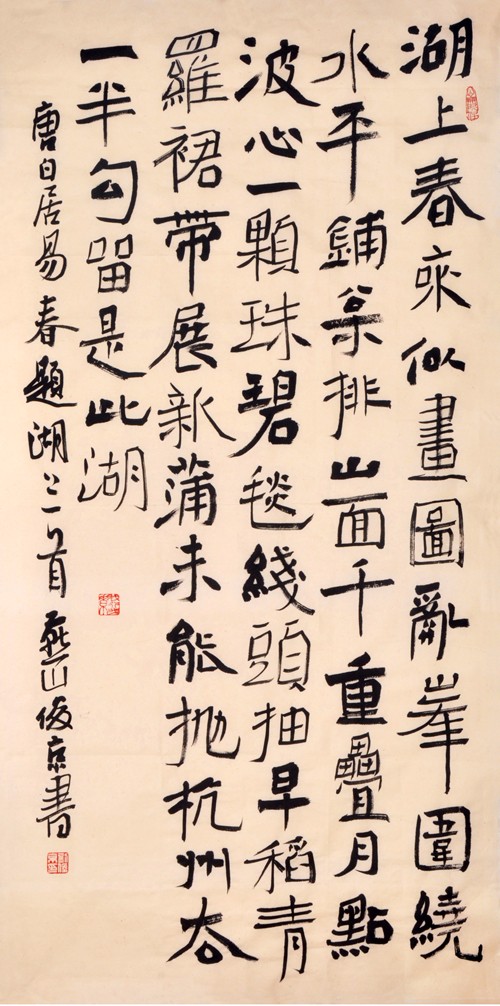 湖上春來似畫圖亂峯圍繞
水平鋪枀排山面千重疊月點
波心一顆珠碧毯綫頭抽早稻青
羅裙帶展新蒲未能抛杭州去
一半勾留是此湖
唐白居易春題湖上一首 燕山俊京書